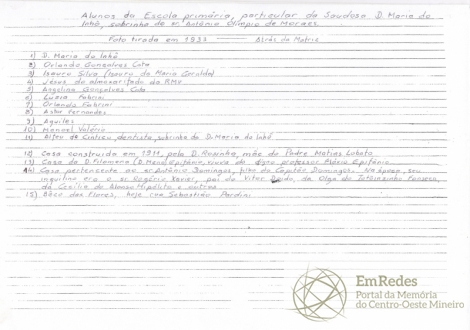 Alunos da Escola primária, particular da Saudosa D. Maria do
Inhô, sobrinha do sr. Antônio Olímpio de Moraes.
Foto tirada em 1933 Atrás da Matriz
1) D. Maria do Inhô
2) Orlando Gonçalves Cota
3) Isaura Silva (Isaura da Maria Geralda)
4) Jesus do almoxarifado da RMV
5) Angelina Gonçalves Cota
6) Luzia Fabrini
7) Orlando Fabrini
8) Astor Fernandes
9) Aquiles
10) Manoel Valério
11) Alfeu de dentista, sobrinho da D. Maria do Inhô
12) Casa construída em 1911, pela D. Rosinha, mãe do Padre Matias Lobato
13) Casa da D. Filomena (D. Mena) Epifânio, viúva do digno professor Epifânio
14) Casa pertencente ao sr Antônio Domingos, filho do Capitão Domingos. Na época, seu
inquilino era o sr. Rogério Xavier, pai do Vitor, da Olga do Fonseca,
da Cecília do Alonso Hipólito e outros
15) Beco das Flores, hoje rua Sebastião Pardini
EmRedes
Portal da Memória
do Centro-Oeste Mineiro